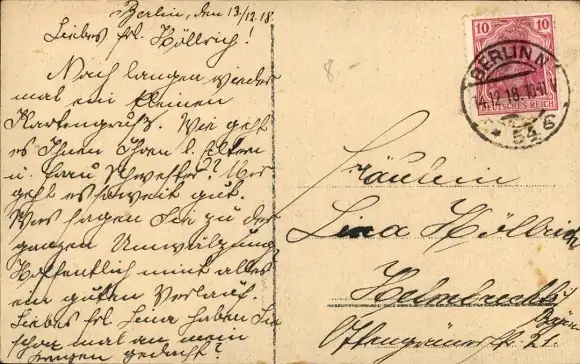 Berlin, den 13/12.18.
Liebes Frl. Höllrich!
Nach langen wieder
mal ein kleinen
Kartengruß. Wie geht
es Ihnen Ihren l. Eltern
u. Frau Schwester? Mir
geht es soweit gut.
Was sagen Sie zu der
ganzen Umwälzung
Hoffentlich nimt alles
ein guten Verlauf.
Liebes Frl. Lina haben Sie
schon mal an mein
gedacht?
8 -
10 10
DEUTSCHES REICH
BERLIN N
12.18.10-11
* 54 g
Fräulein
Lina Höllrich
Helmbrechts
Bayern
21.